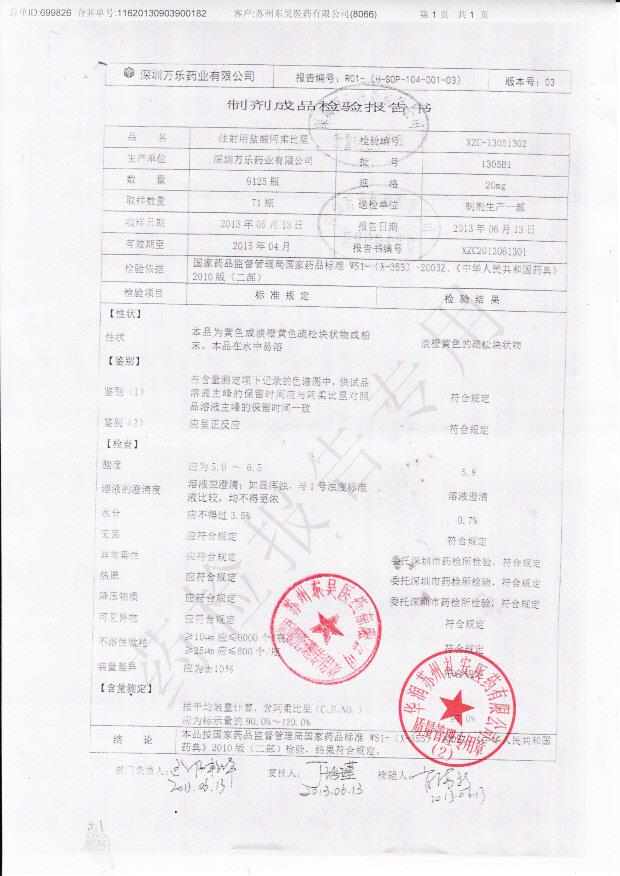 总单ID:699826 合并单号:11620130903900182 客户:苏州东吴医药有限公司(8066) 第 1 页 共 1 页
深圳万乐药业有限公司 报告编号：R01-（H-SOP-104-001-03） 版本号：03
制剂成品检验报告书
品 名 注射用盐酸阿柔比星 检验编号 XZC-13051302
生产单位 深圳万乐药业有限公司 批 号 1305B1
数 量 9125 瓶 规 格 20mg
取样数量 71 瓶 送检单位 制剂生产一部
收样日期 2013 年 05 月 13 日 报告日期 2013 年 06 月 13 日
有效期至 2015 年 04 月 报告书编号 XZC2013061301
检验依据 国家药品监督管理局国家药品标准 WS1-（X-355）-2003Z、《中华人民共和国药典》
2010 版（二部）
检验项目 标 准 规 定 检 验 结 果
【性状】
性状 本品为黄色或淡橙黄色疏松块状物或粉
末。本品在水中易溶 淡橙黄色的疏松块状物
【鉴别】
鉴别（1） 在含量测定项下记录的色谱图中，供试品
溶液主峰的保留时间应与阿柔比星对照
品溶液主峰的保留时间一致 符合规定
鉴别（2） 应呈正反应 符合规定
【检查】
酸度 应为 5.0 ～ 6.5 5.8
溶液的澄清度 溶液应澄清；如显浑浊，与 1 号浊度标准
液比较，均不得更浓 溶液澄清
水分 应不得过 3.5% 0.7%
无菌 应符合规定 符合规定
异常毒性 应符合规定 委托深圳市药检所检验，符合规定
热原 应符合规定 委托深圳市药检所检验，符合规定
降压物质 应符合规定 委托深圳市药检所检验，符合规定
可见异物 应符合规定 符合规定
不溶性微粒 ≥10um 应≤6000 个/瓶
≥25um 应≤600 个/瓶 符合规定
装量差异 应为±10% 符合规定
【含量测定】
按平均装量计算，含阿柔比星
应为标示量的 90.0%～120.0%
结 论 本品按国家药品监督管理局国家药品标准 WS1-（X-355）人民共和国
药典》2010 版（二部）检验，结果符合规定。
部门负责人： 复核人： 检验人：
2013.06.13 2013.06.13 2013.06.13
药检报告专用
苏州东吴医药有限公司
华润苏州礼安医药有限公司
质量管理专用章
（2）